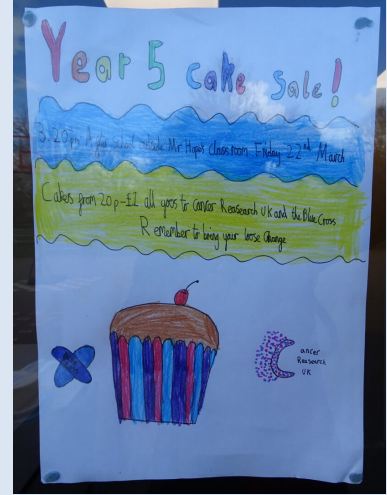 Year 5 cake sale!
3.20pm After school outside Mr Hope's classroom Friday 22nd March
Cakes from 20p-£1 all goes to Cancer Reasearch UK and the Blue Cross
Remember to bring your loose change
Cancer
Reasearch
UK